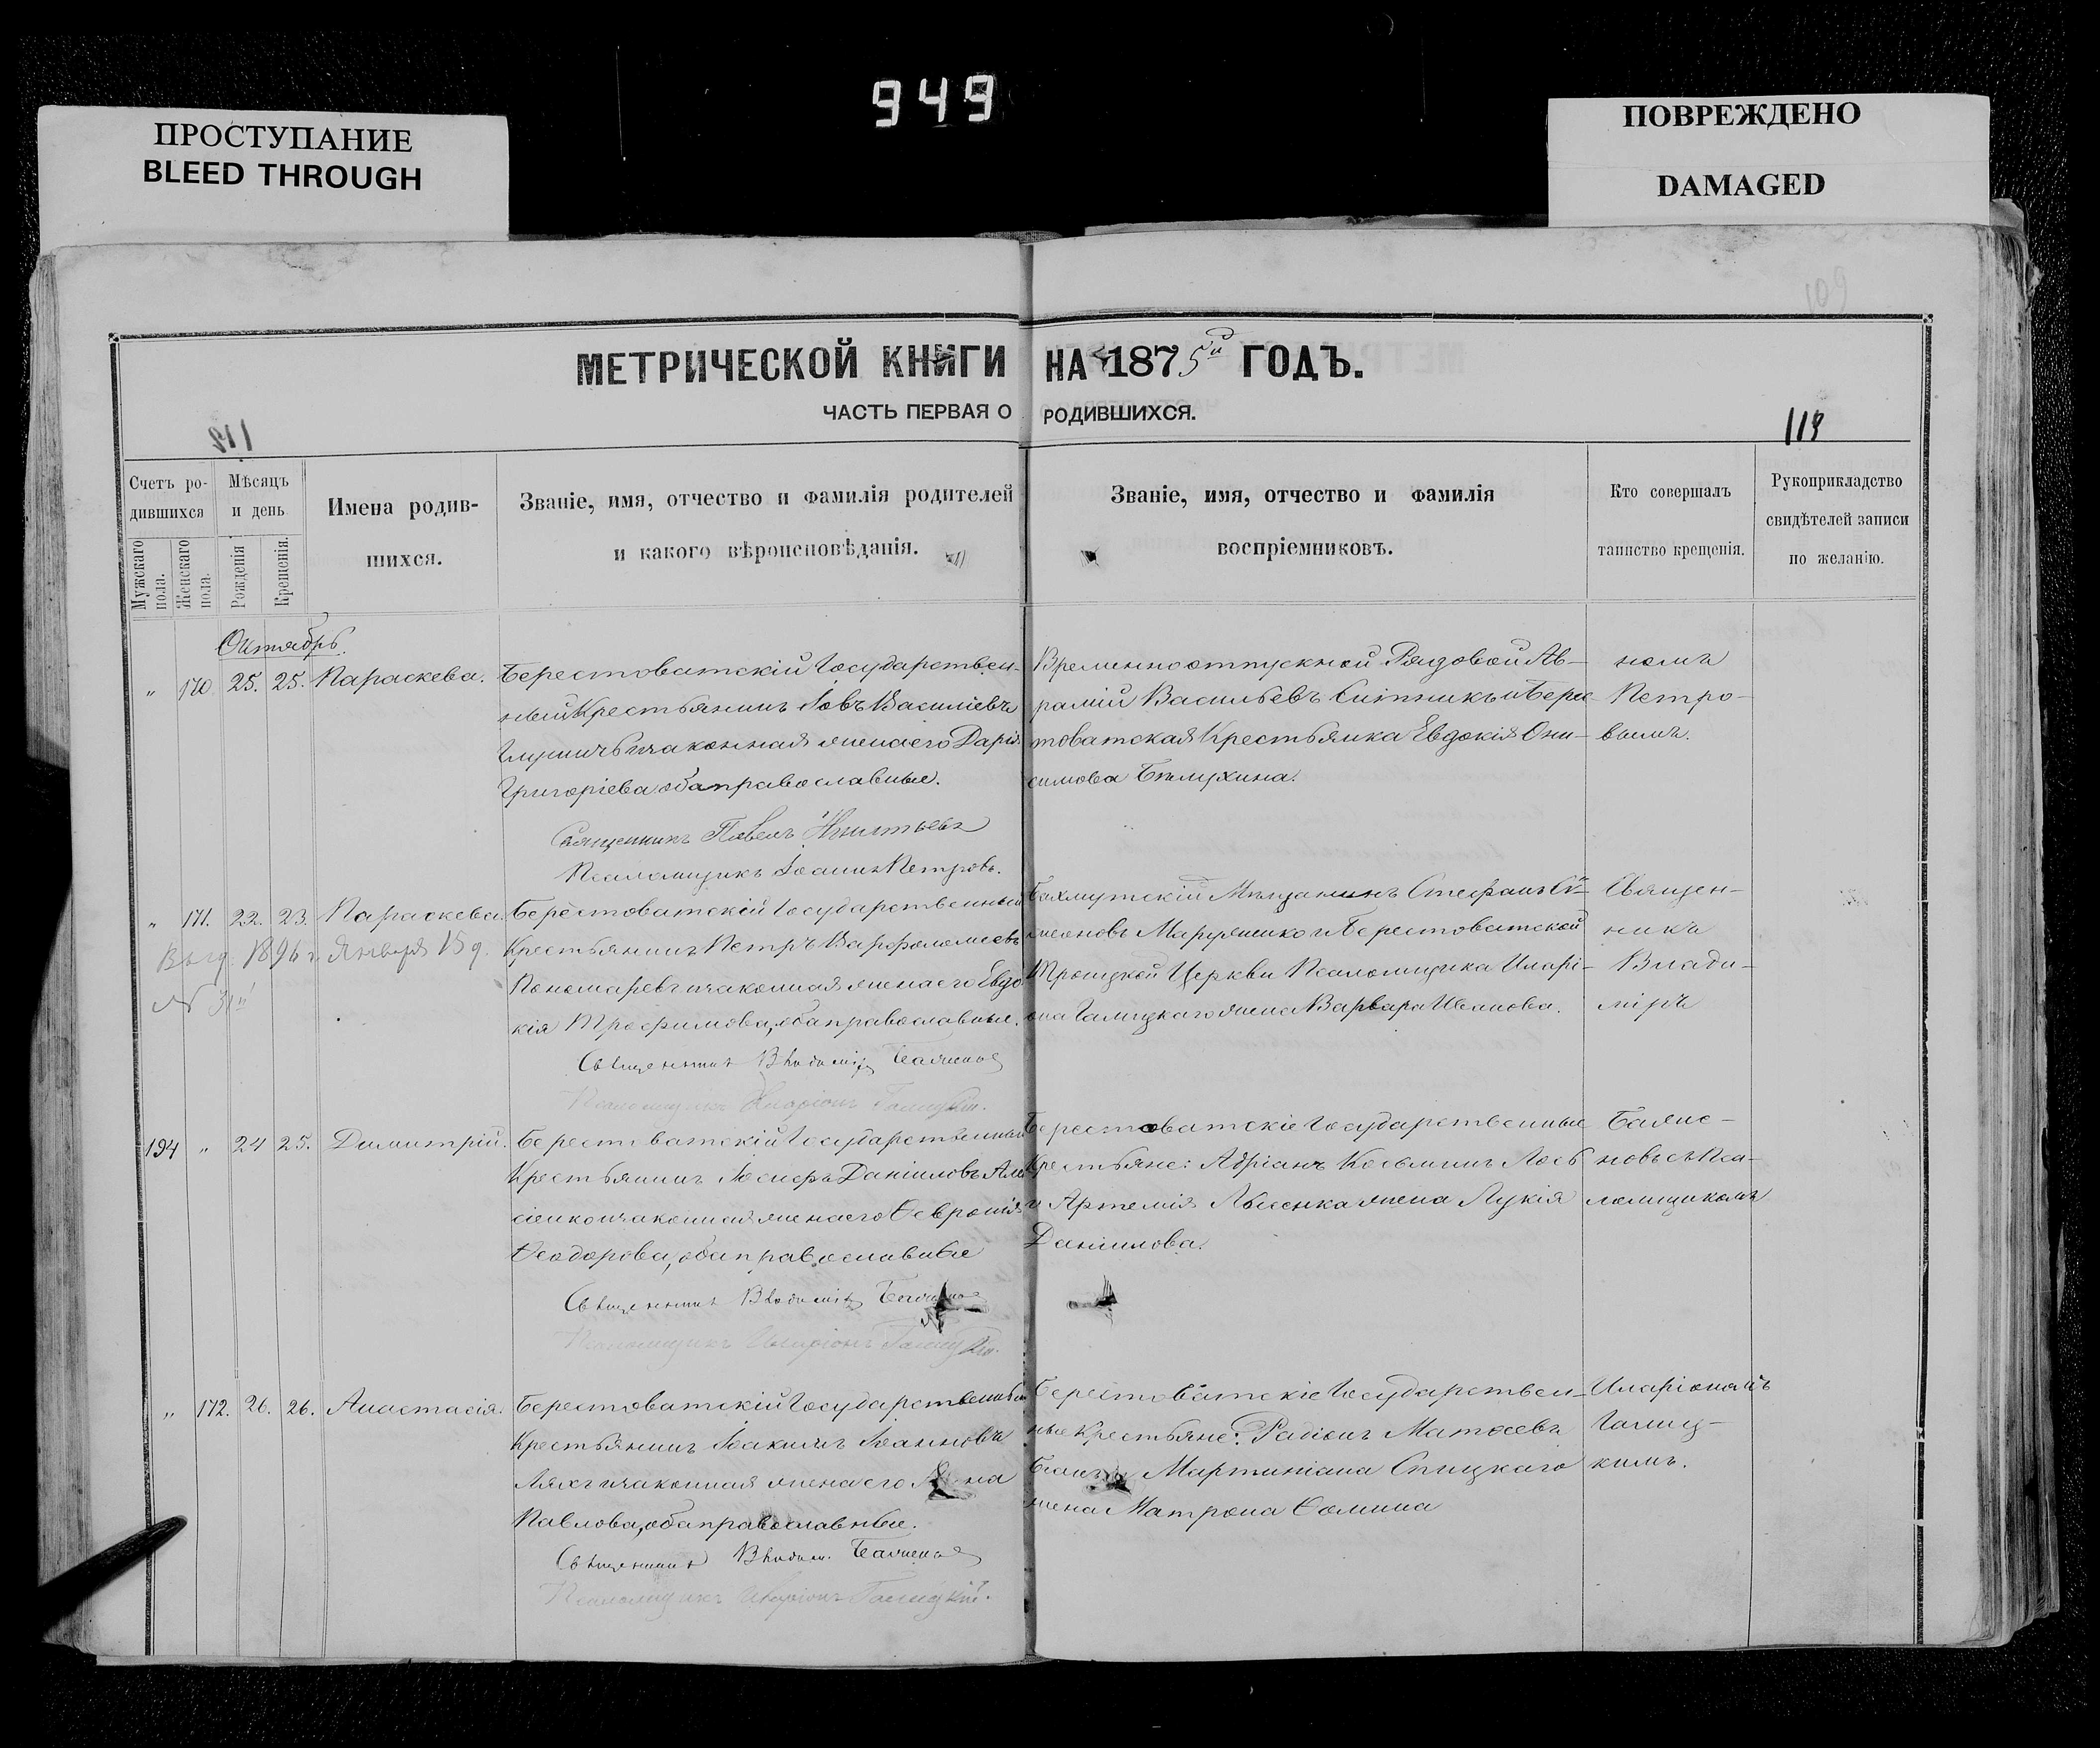 949
ПРОСТУПАНИЕ
BLEED THROUGH
ПОВРЕЖДЕНО
DAMAGED
МЕТРИЧЕСКОЙ КНИГИ НА 1875й ГОДЪ.
ЧАСТЬ ПЕРВАЯ О РОДИВШИХСЯ.
Счетъ ро-
дившихся
Мужскаго пола.
Женскаго пола.
Мѣсяцъ
и день
Рожденія
Крещенія.
Имена родив-
шихся.
Званіе, имя, отчество и фамилія родителей
и какого вѣроисповѣданія.
Званіе, имя, отчество и фамилія
воспріемниковъ.
Кто совершалъ
таинство крещенія.
Рукоприкладство
свидѣтелей записи
по желанію.
Октябрь.
" 170 25. 25. Параскева.
Берестоватскій Государствен-
ный Крестьянинъ Іовъ Василіевъ
и законная жена его Дарія
Григоріева оба православные.
Священникъ Павелъ
Псаломщикъ Іоаннъ Петровъ.
Временноотпускной Рядовой Ав-
рамій Васильевъ Ситникъ и Берес-
товатская Крестьянка Евдокія Они-
симова
номъ
Петро-
вымъ.
" 171. 22. 23. Параскева.
Выд. 1896 г. Января 15 д.
№
Берестоватскій Государственный
Крестьянинъ Петръ Варфоломеевъ
Пономаревъ и законная жена его Евдо-
кія Трофимова, оба православные.
Священникъ Владиміръ Баженовъ
Псаломщикъ Иларіонъ Галицкій.
Бахмутскій Мѣщанинъ Стефанъ Си-
меоновъ и Берестоватской
Троицкой Церкви Псаломщика Иларі-
она Галицкаго жена Варвара Иванова.
Священ-
никъ
Влади-
міръ
194 " 24 25. Димитрій.
Берестоватскій Государственный
Крестьянинъ Іосифъ Даніиловъ
и законная жена его Февронія
Ѳеодорова, оба православные
Священникъ Владиміръ Баженовъ
Псаломщикъ Иларіонъ Галицкій.
Берестоватскіе Государственные
Крестьяне: Адріанъ Косьминъ Лось
и Артемія Лысенка жена Лукія
Даніилова.
Баже-
новъ съ Пса-
ломщикомъ
" 172. 26. 26. Анастасія.
Берестоватскій Государственный
Крестьянинъ Іоакимъ Іоанновъ
Ляхъ и законная жена его
Павлова, оба православные.
Священникъ Владим. Баженовъ
Псаломщикъ Иларіонъ Галицкій.
Берестоватскіе Государствен-
ные Крестьяне: Радіонъ Матѳеевъ
Мартиніана Спицкаго
жена Матрона Ѳомина
Иларіономъ
Галиц-
кимъ.